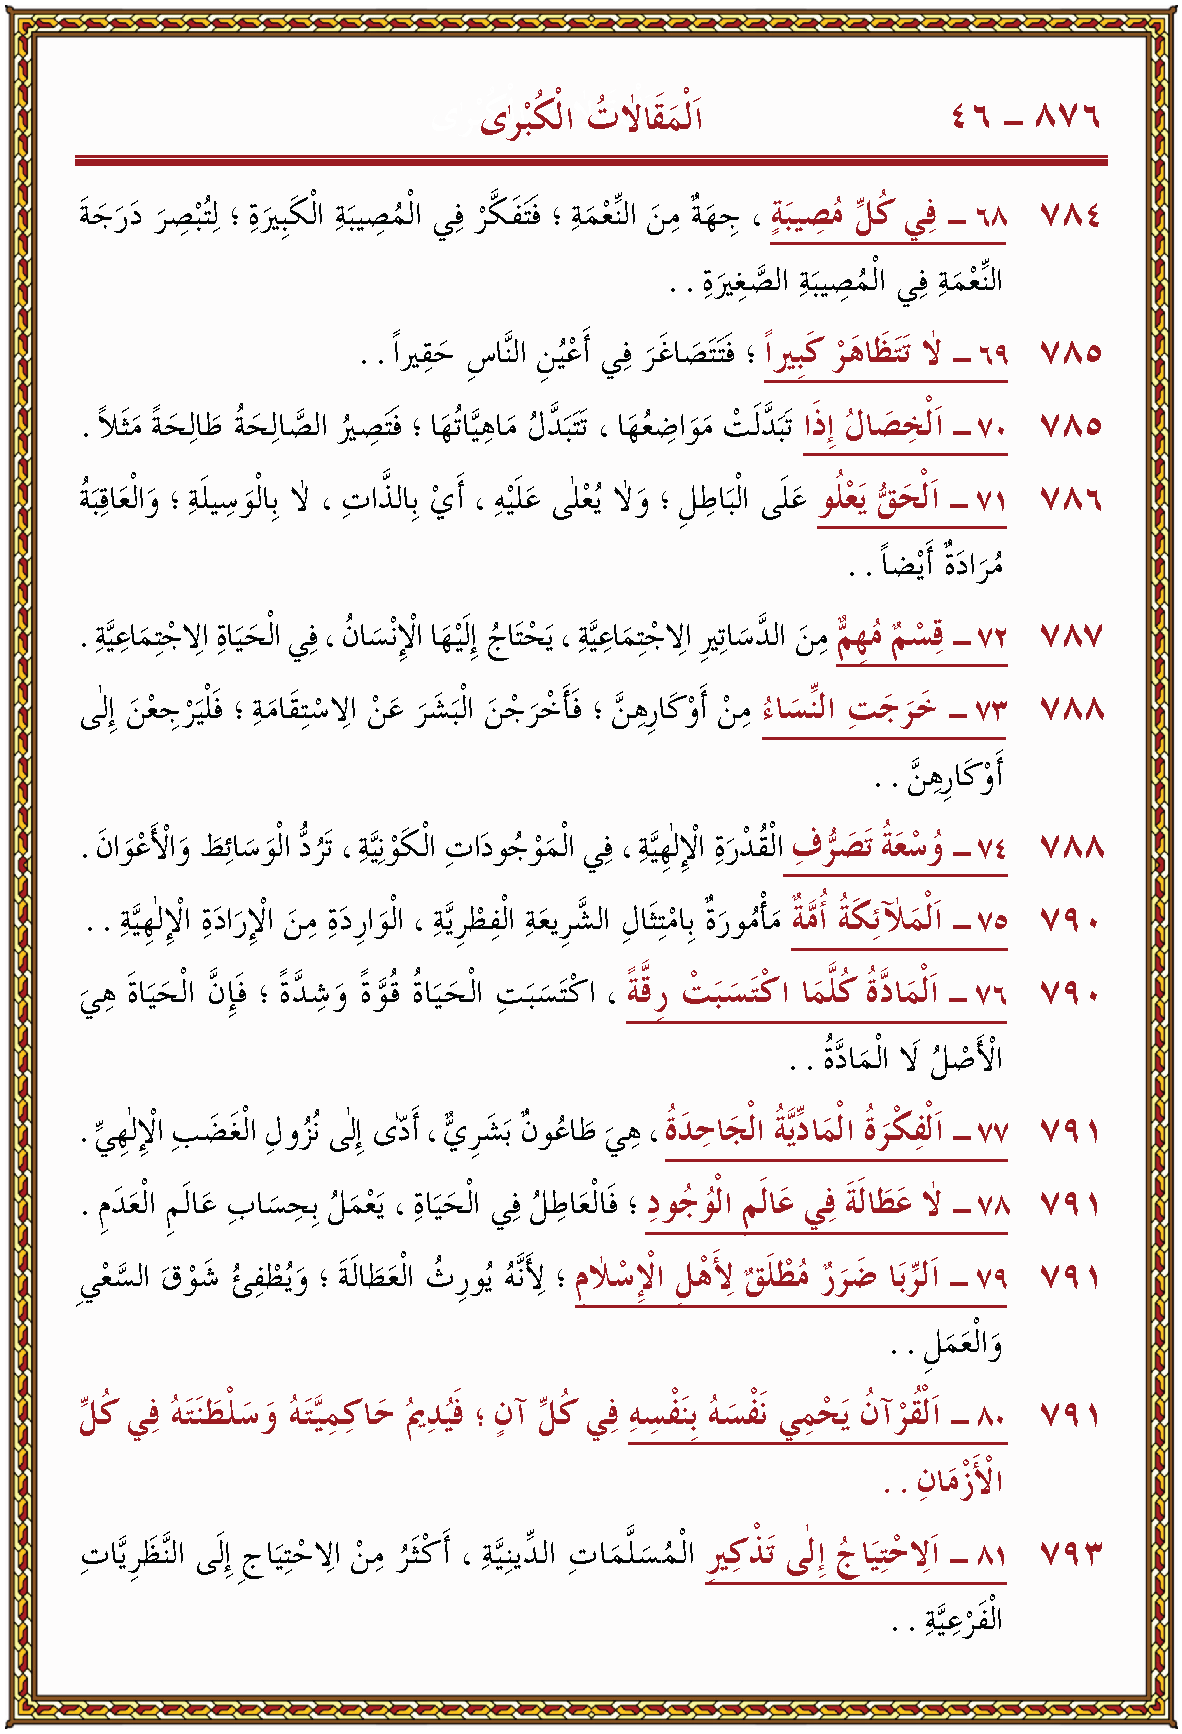 ٨٧٦ ــ ٤٦ اَلْمَقَالاٰتُ الْكُبْرٰى
٧٨٤ ٦٨ ــ فِي كُلِّ مُصِيبَةٍ ، جِهَةٌ مِنَ النِّعْمَةِ ؛ فَتَفَكَّرْ فِي الْمُصِيبَةِ الْكَبِيرَةِ ؛ لِتُبْصِرَ دَرَجَةَ
النِّعْمَةِ فِي الْمُصِيبَةِ الصَّغِيرَةِ . .
٧٨٥ ٦٩ ــ لاٰ تَتَظَاهَرْ كَبِيراً ؛ فَتَتَصَاغَرَ فِي أَعْيُنِ النَّاسِ حَقِيراً . .
٧٨٥ ٧٠ ــ اَلْخِصَالُ إِذَا تَبَدَّلَتْ مَوَاضِعُهَا ، تَتَبَدَّلُ مَاهِيَّاتُهَا ؛ فَتَصِيرُ الصَّالِحَةُ طَالِحَةً مَثَلاً .
٧٨٦ ٧١ ــ اَلْحَقُّ يَعْلُو عَلَى الْبَاطِلِ ؛ وَلاٰ يُعْلٰى عَلَيْهِ ، أَيْ بِالذَّاتِ ، لاٰ بِالْوَسِيلَةِ ؛ وَالْعَاقِبَةُ
مُرَادَةٌ أَيْضاً . .
٧٨٧ ٧٢ ــ قِسْمٌ مُهِمٌّ مِنَ الدَّسَاتِيرِ الاِجْتِمَاعِيَّةِ ، يَحْتَاجُ إِلَيْهَا الْإِنْسَانُ ، فِي الْحَيَاةِ الاِجْتِمَاعِيَّةِ .
٧٨٨ ٧٣ ــ خَرَجَتِ النِّسَاءُ مِنْ أَوْكَارِهِنَّ ؛ فَأَخْرَجْنَ الْبَشَرَ عَنْ الاِسْتِقَامَةِ ؛ فَلْيَرْجِعْنَ إِلٰى
أَوْكَارِهِنَّ . .
٧٨٨ ٧٤ ــ وُسْعَةُ تَصَرُّفِ الْقُدْرَةِ الْإِلٰهِيَّةِ ، فِي الْمَوْجُودَاتِ الْكَوْنِيَّةِ ، تَرُدُّ الْوَسَائِطَ وَالْأَعْوَانَ .
٧٩٠ ٧٥ ــ اَلْمَلاٰۤئِكَةُ أُمَّةٌ مَأْمُورَةٌ بِامْتِثَالِ الشَّرِيعَةِ الْفِطْرِيَّةِ ، الْوَارِدَةِ مِنَ الْإِرَادَةِ الْإِلٰهِيَّةِ . .
٧٩٠ ٧٦ ــ اَلْمَادَّةُ كُلَّمَا اكْتَسَبَتْ رِقَّةً ، اكْتَسَبَتِ الْحَيَاةُ قُوَّةً وَشِدَّةً ؛ فَإِنَّ الْحَيَاةَ هِيَ
الْأَصْلُ لَا الْمَادَّةُ . .
٧٩١ ٧٧ ــ اَلْفِكْرَةُ الْمَادِّيَّةُ الْجَاحِدَةُ ، هِيَ طَاعُونٌ بَشَرِيٌّ ، أَدّٰى إِلٰى نُزُولِ الْغَضَبِ الْإِلٰهِيِّ .
٧٩١ ٧٨ ــ لاٰ عَطَالَةَ فِي عَالَمِ الْوُجُودِ ؛ فَالْعَاطِلُ فِي الْحَيَاةِ ، يَعْمَلُ بِحِسَابِ عَالَمِ الْعَدَمِ .
٧٩١ ٧٩ ــ اَلرِّبَا ضَرَرٌ مُطْلَقٌ لِأَهْلِ الْإِسْلاٰمِ ؛ لِأَنَّهُ يُورِثُ الْعَطَالَةَ ؛ وَيُطْفِئُ شَوْقَ السَّعْيِ
وَالْعَمَلِ . .
٧٩١ ٨٠ ــ اَلْقُرْآنُ يَحْمِي نَفْسَهُ بِنَفْسِهِ فِي كُلِّ آنٍ ؛ فَيُدِيمُ حَاكِمِيَّتَهُ وَسَلْطَنَتَهُ فِي كُلِّ
الْأَزْمَانِ . .
٧٩٣ ٨١ ــ اَلاِحْتِيَاجُ إِلٰى تَذْكِيرِ الْمُسَلَّمَاتِ الدِّينِيَّةِ ، أَكْثَرُ مِنْ الاِحْتِيَاجِ إِلَى النَّظَرِيَّاتِ
الْفَرْعِيَّةِ . .